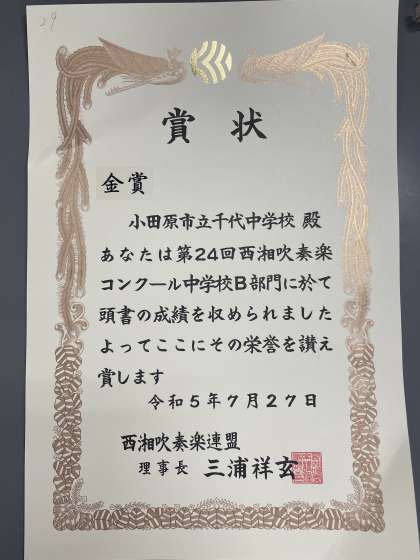 29
賞状
金賞
小田原市立千代中学校 殿
あなたは第24回西湘吹奏楽
コンクール中学校B部門に於て
頭書の成績を収められました
よってここにその栄誉を讃え
賞します
令和5年7月27日
西湘吹奏楽連盟
理事長 三浦祥玄